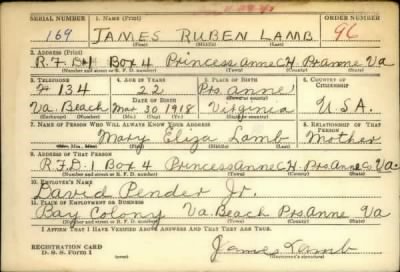 SERIAL NUMBER 1. NAME (Print) ORDER NUMBER
169 JAMES RUBEN LAMB 96
(First) (Middle) (Last)
2. ADDRESS (Print)
R.F.D.1 Box 4 Princess Anne C.H. Pr. Anne Va
(Number and street or R. F. D. number) (Town) (County) (State)
3. TELEPHONE 4. AGE IN YEARS 5. PLACE OF BIRTH 6. COUNTRY OF CITIZENSHIP
# 134 22 Prs. Anne
DATE OF BIRTH (Town or county)
Va. Beach Mar 20 1918 Virginia U.S.A.
(Exchange) (Number) (Mo.) (Day) (Yr.) (State or country)
7. NAME OF PERSON WHO WILL ALWAYS KNOW YOUR ADDRESS 8. RELATIONSHIP OF THAT PERSON
Mary Eliza Lamb Mother
(Mr., Mrs., Miss) (First) (Middle) (Last)
9. ADDRESS OF THAT PERSON
R.F.D. 1 Box 4 Princess Anne C.H. Prs. Anne Co Va.
(Number and street or R. F. D. number) (Town) (County) (State)
10. EMPLOYER'S NAME
David Pender Jr.
11. PLACE OF EMPLOYMENT OR BUSINESS
Bay Colony Va. Beach Prs. Anne Va
(Number and street or R. F. D. number) (Town) (County) (State)
I AFFIRM THAT I HAVE VERIFIED ABOVE ANSWERS AND THAT THEY ARE TRUE.
REGISTRATION CARD James Lamb
D. S. S. Form 1 (Registrant's signature)